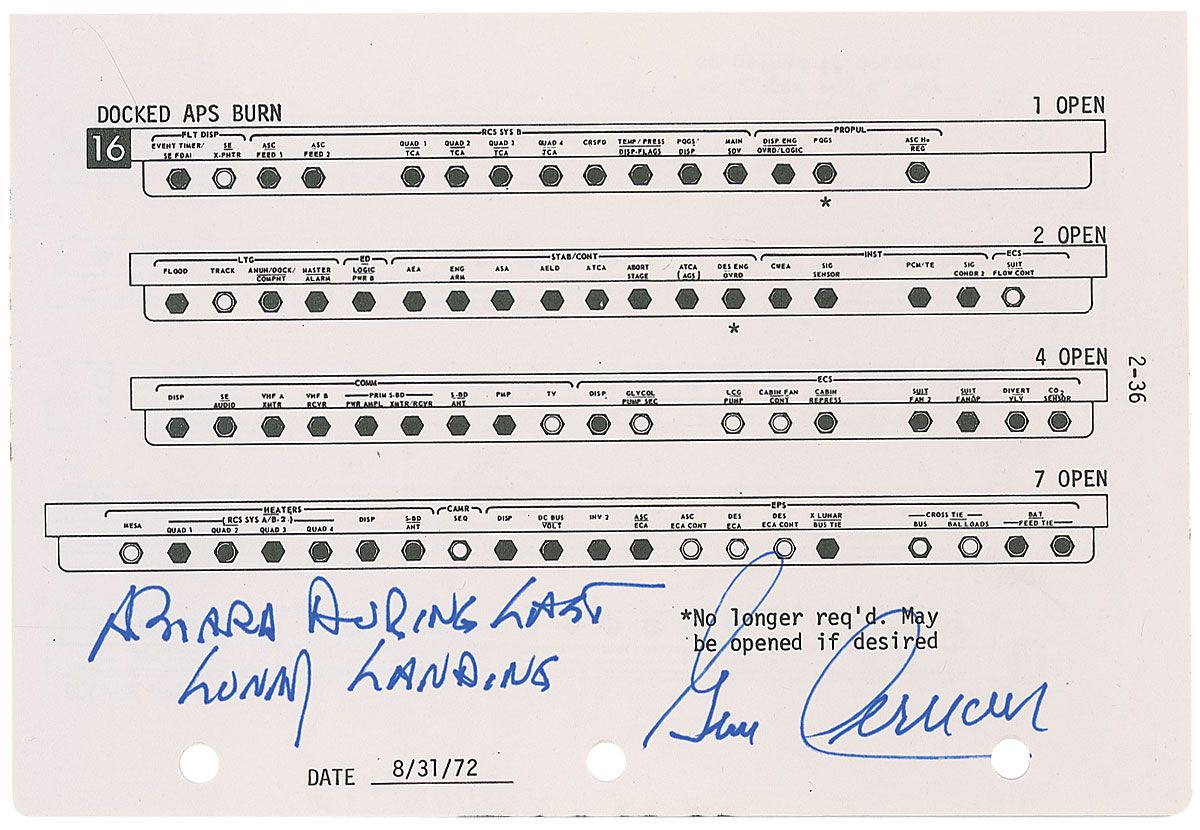 DOCKED APS BURN
1 OPEN
16
FLT DISP RCS SYS B PROPUL
EVENT TIMER/ SE ASC ASC QUAD 1 QUAD 2 QUAD 3 QUAD 4 CRSFD TEMP/PRESS PQGS MAIN DISP ENG PQGS ASC He
SE FDAI X-PNTR FEED 1 FEED 2 TCA TCA TCA TCA DISP-FLAGS DISP SOV OVRD/LOGIC REG
*
2 OPEN
LTG ED STAB/CONT INST ECS
FLOOD TRACK ANUN/DOCK/ MASTER LOGIC AEA ENG ASA AELD ATCA ABORT ATCA DES ENG CWEA SIG PCM/TE SIG SUIT
COMPNT ALARM PWR B ARM STAGE (AGS) OVRD SENSOR CONDR 2 FLOW CONT
*
4 OPEN
COMM ECS
DISP SE VHF A VHF B PRIM S-BD S-BD PMP TV DISP GLYCOL LCG CABIN FAN CABIN SUIT SUIT DIVERT CO2
AUDIO XMTR RCVR PWR AMPL XMTR/RCVR ANT PUMP SEC PUMP CONT REPRESS FAN 2 FANΔP VLV SENSOR
2-36
7 OPEN
HEATERS CAMR EPS
MESA (RCS SYS A/B-2) DISP S-BD SEQ DISP DC BUS INV 2 ASC ASC DES DES X LUNAR CROSS TIE BAT
QUAD 1 QUAD 2 QUAD 3 QUAD 4 ANT VOLT ECA ECA CONT ECA ECA CONT BUS TIE BUS BAL LOADS FEED TIE
ABOARD DURING LAST
LUNAR LANDING
*No longer req'd. May
be opened if desired
Gene Cernan
DATE 8/31/72